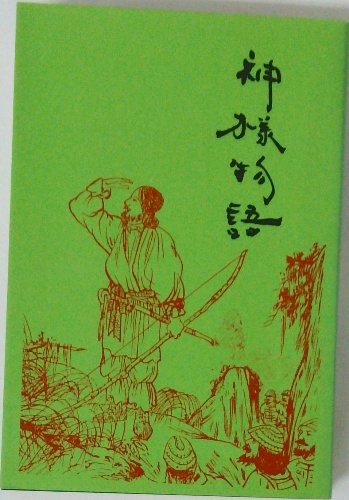 神様物語